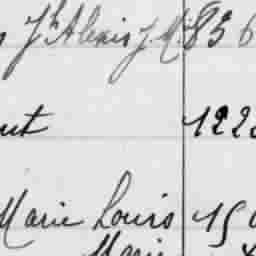 Jh Alexis J. M. 836
ut 122
Marie Louis 15
Marie